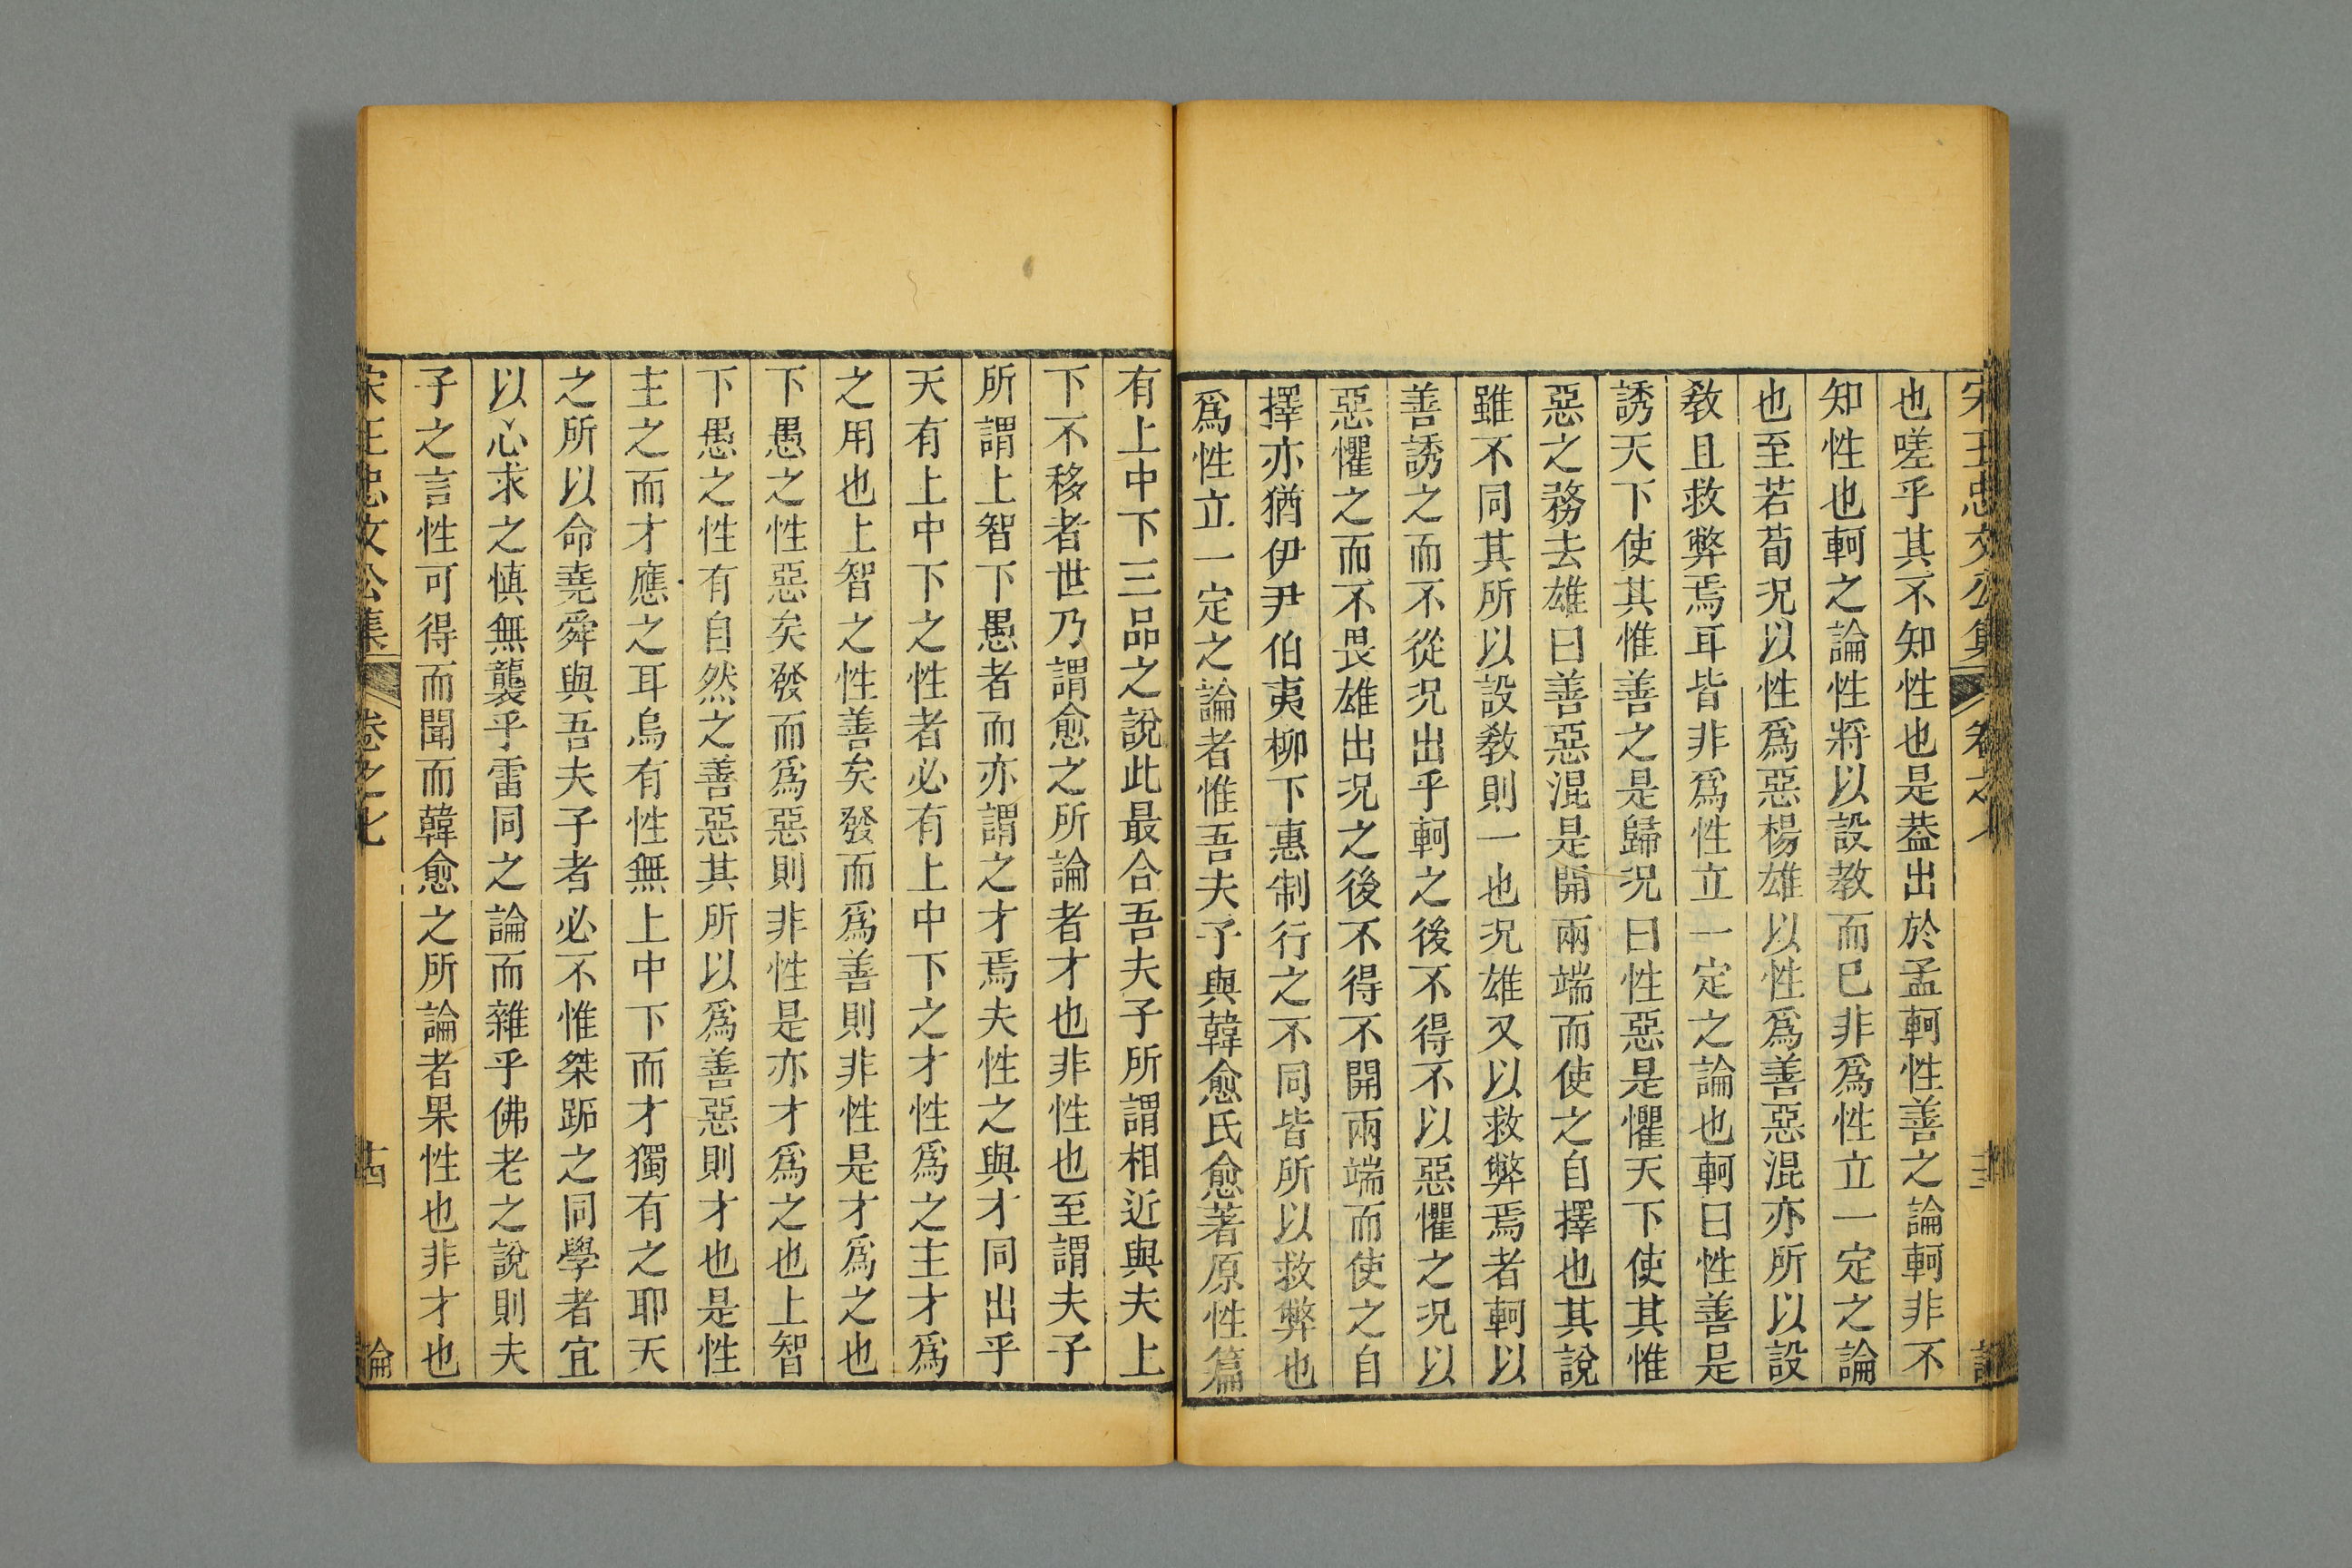 宋王忠文公集 卷之七 論
也嗟乎其不知性也是葢出於孟軻性善之論軻非不
知性也軻之論性將以設教而巳非爲性立一定之論
也至若荀況以性爲惡楊雄以性爲善惡混亦所以設
教且救弊焉耳皆非爲性立一定之論也軻曰性善是
誘天下使其惟善之是歸況曰性惡是懼天下使其惟
惡之務去雄曰善惡混是開兩端而使之自擇也其說
雖不同其所以設教則一也況雄又以救弊焉者軻以
善誘之而不從況出乎軻之後不得不以惡懼之況以
惡懼之而不畏雄出況之後不得不開兩端而使之自
擇亦猶伊尹伯夷柳下惠制行之不同皆所以救弊也
爲性立一定之論者惟吾夫子與韓愈氏愈著原性篇
有上中下三品之說此最合吾夫子所謂相近與夫上
下不移者世乃謂愈之所論者才也非性也至謂夫子
所謂上智下愚者而亦謂之才焉夫性之與才同出乎
天有上中下之性者必有上中下之才性爲之主才爲
之用也上智之性善矣發而爲善則非性是才爲之也
下愚之性惡矣發而爲惡則非性是亦才爲之也上智
下愚之性有自然之善惡其所以爲善惡則才也是性
主之而才應之耳烏有性無上中下而才獨有之耶天
之所以命堯舜與吾夫子者必不惟桀跖之同學者宜
以心求之慎無襲乎雷同之論而雜乎佛老之說則夫
子之言性可得而聞而韓愈之所論者果性也非才也
宋王忠文公集 卷之七 十四 論